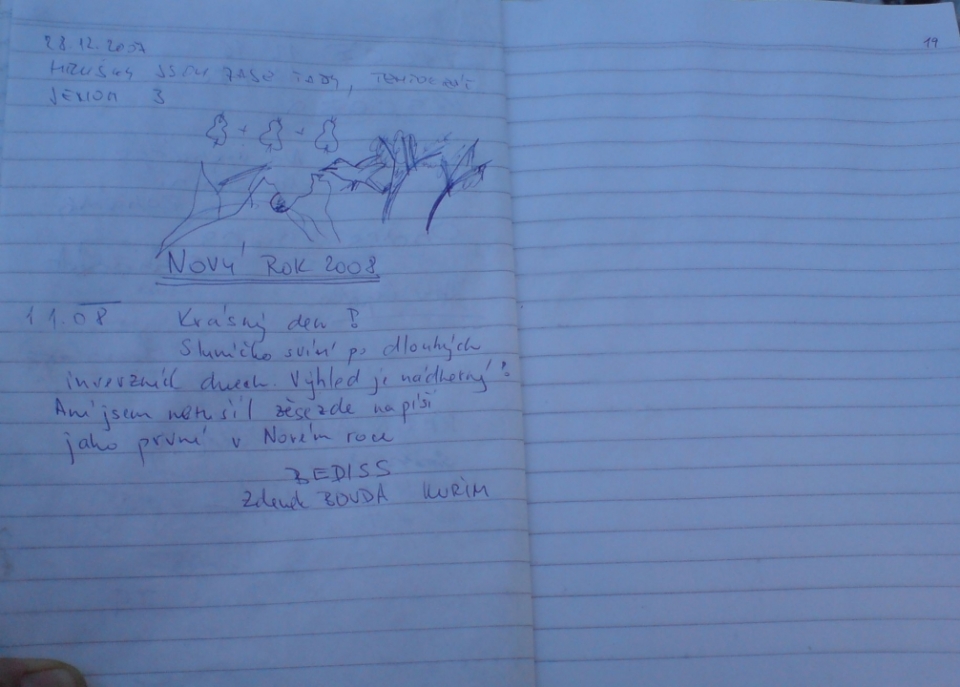 28.12.2007
HRUŠKY JSOU ZASE TADY, TENTOKRÁT
JENOM 3
+ +
NOVÝ ROK 2008
1 1.08 Krásný den !
Sluníčko svítí po dlouhých
inverzních dnech. Výhled je nádherný !
Ani jsem netušil že se zde napíši
jako první v Novém roce
BEDISS
Zdenek BOUDA KUŘIM
19